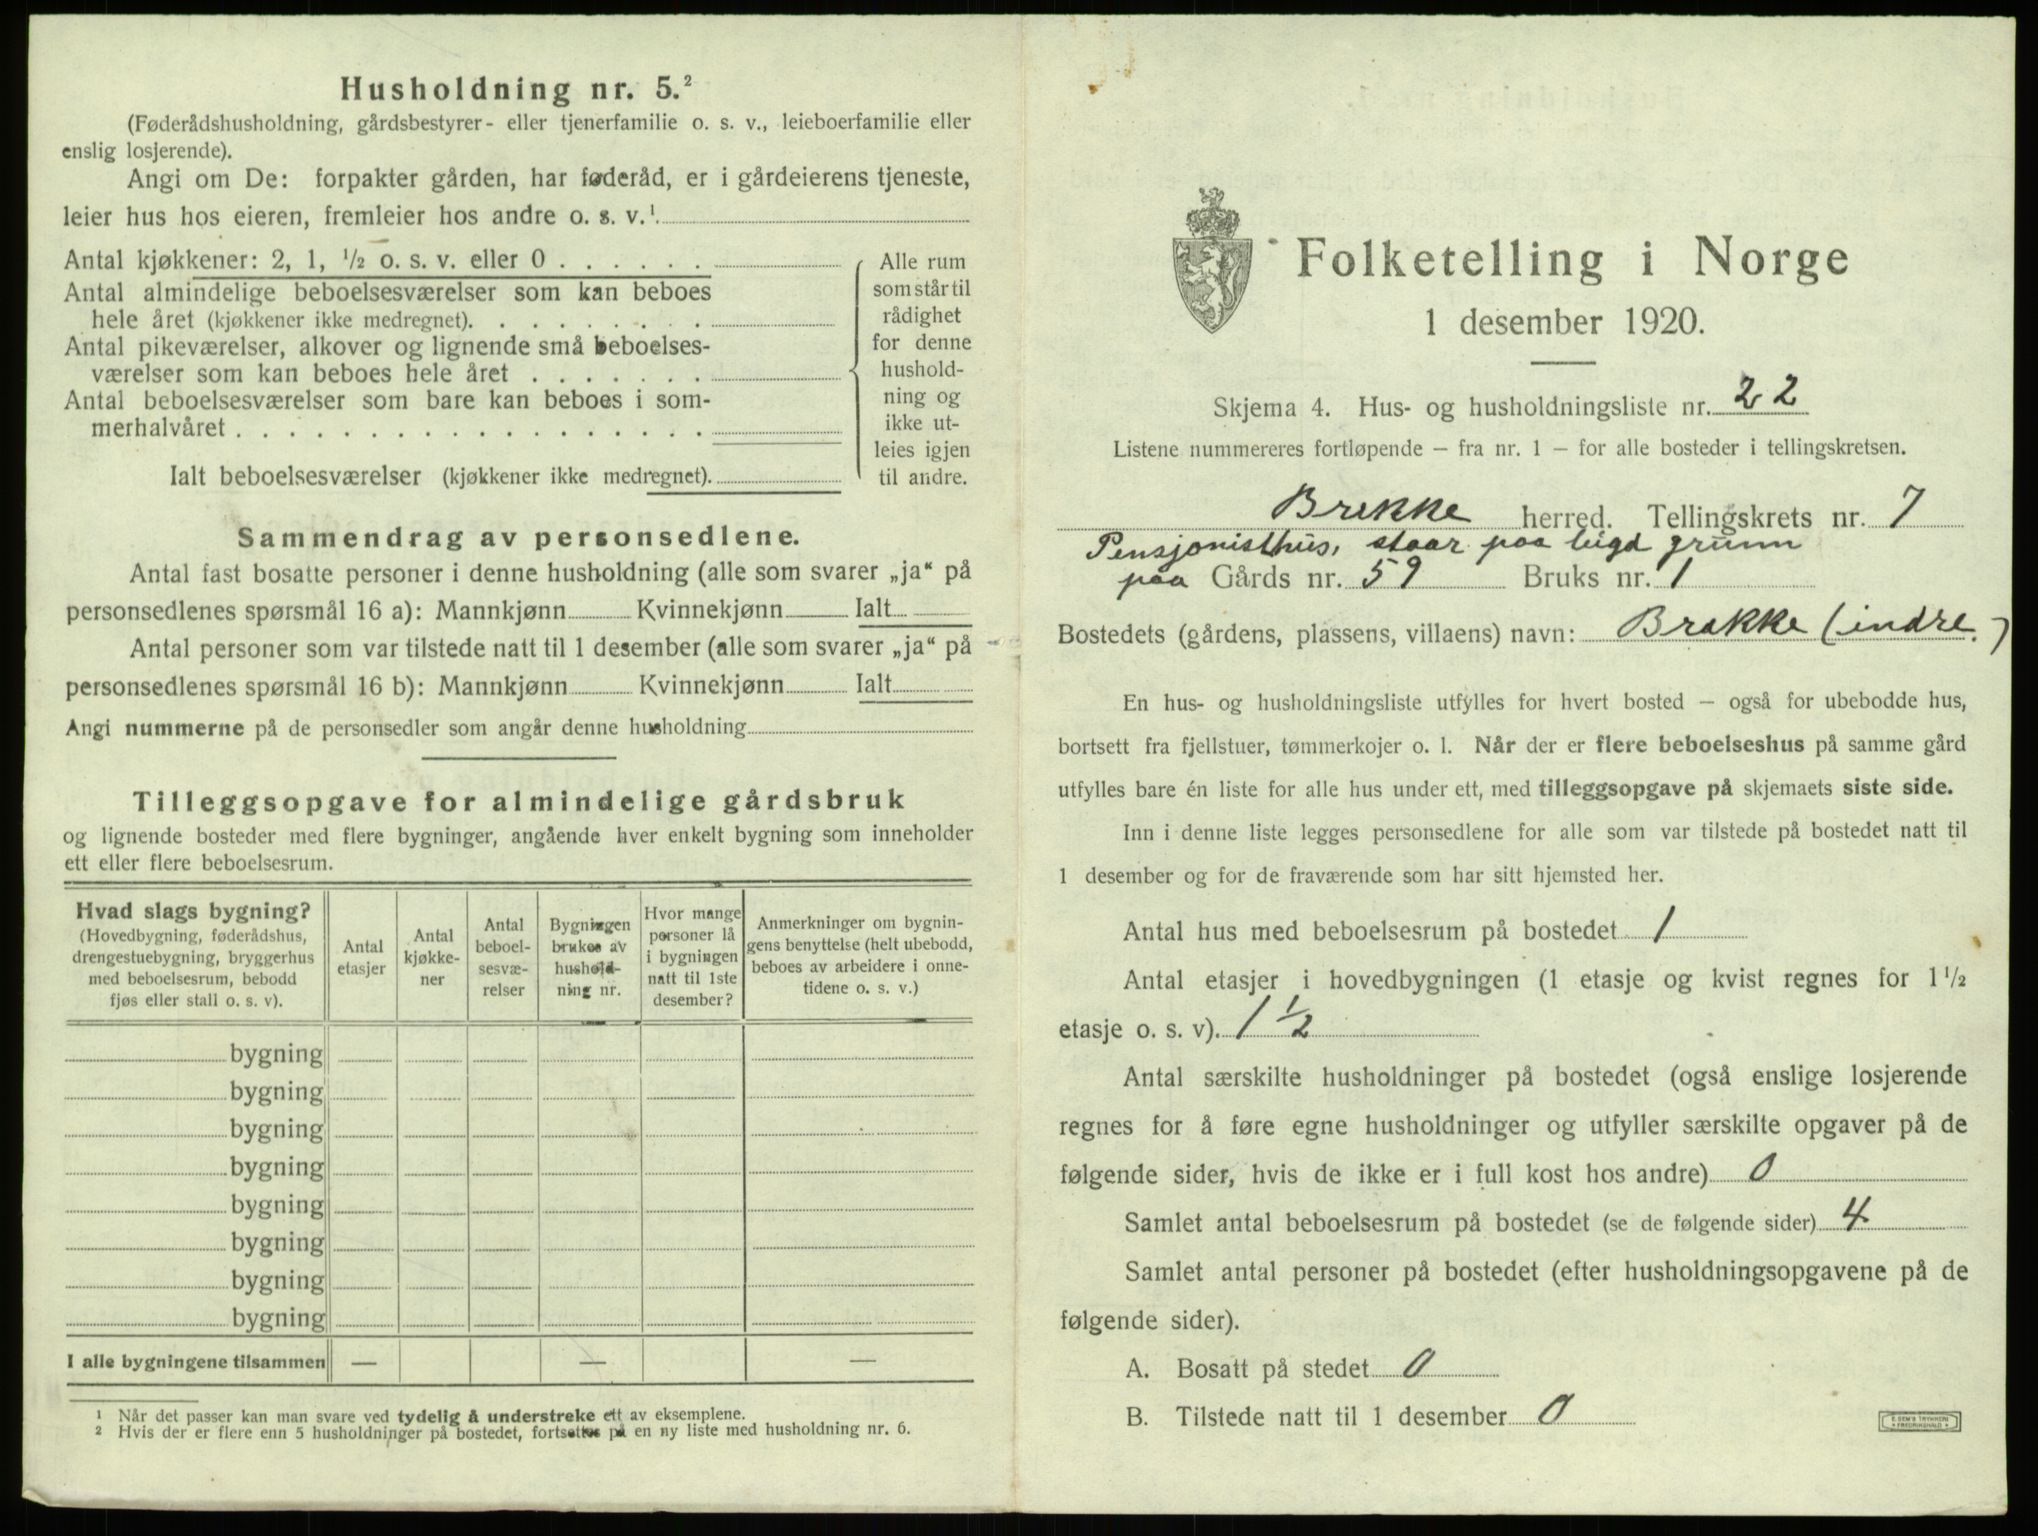 Husholdning nr. 5.²
(Føderådshusholdning, gårdsbestyrer- eller tjenerfamilie o. s. v., leieboerfamilie eller
enslig losjerende).
Angi om De: forpakter gården, har føderåd, er i gårdeierens tjeneste,
leier hus hos eieren, fremleier hos andre o. s. v.¹
Antal kjøkkener: 2, 1, ½ o. s. v. eller 0 . . . . . .
Antal almindelige beboelsesværelser som kan beboes
hele året (kjøkkener ikke medregnet). . . . . . . . .
Antal pikeværelser, alkover og lignende små beboelses-
værelser som kan beboes hele året . . . . . . .
Antal beboelsesværelser som bare kan beboes i som-
merhalvåret . . . . . . . . . . . . . . . . . .
Ialt beboelsesværelser (kjøkkener ikke medregnet).
Alle rum
som står til
rådighet
for denne
hushold-
ning og
ikke ut-
leies igjen
til andre.
Sammendrag av personsedlene.
Antal fast bosatte personer i denne husholdning (alle som svarer „ja“ på
personsedlenes spørsmål 16 a): Mannkjønn Kvinnekjønn Ialt
Antal personer som var tilstede natt til 1 desember (alle som svarer „ja“ på
personsedlenes spørsmål 16 b): Mannkjønn Kvinnekjønn Ialt
Angi nummerne på de personsedler som angår denne husholdning
Tilleggsopgave for almindelige gårdsbruk
og lignende bosteder med flere bygninger, angående hver enkelt bygning som inneholder
ett eller flere beboelsesrum.
Hvad slags bygning?
(Hovedbygning, føderådshus,
drengestuebygning, bryggerhus
med beboelsesrum, bebodd
fjøs eller stall o. s. v).
Antal
etasjer
Antal
kjøkke-
ner
Antal
beboel-
sesvæ-
relser
Bygningen
brukes av
hushold-
ning nr.
Hvor mange
personer lå
i bygningen
natt til 1ste
desember?
Anmerkninger om bygnin-
gens benyttelse (helt ubebodd,
beboes av arbeidere i onne-
tidene o. s. v.)
bygning
bygning
bygning
bygning
bygning
bygning
bygning
bygning
I alle bygningene tilsammen — — —
¹ Når det passer kan man svare ved tydelig å understreke ett av eksemplene.
² Hvis der er flere enn 5 husholdninger på bostedet, fortsettes på en ny liste med husholdning nr. 6.
Folketelling i Norge
1 desember 1920.
Skjema 4. Hus- og husholdningsliste nr. 22
Listene nummereres fortløpende — fra nr. 1 — for alle bosteder i tellingskretsen.
Brekke herred. Tellingskrets nr. 7
Pensjonisthus, staar paa leigd grunn
paa Gårds nr. 59 Bruks nr. 1
Bostedets (gårdens, plassens, villaens) navn: Brekke (indre.)
En hus- og husholdningsliste utfylles for hvert bosted — også for ubebodde hus,
bortsett fra fjellstuer, tømmerkojer o. l. Når der er flere beboelseshus på samme gård
utfylles bare én liste for alle hus under ett, med tilleggsopgave på skjemaets siste side.
Inn i denne liste legges personsedlene for alle som var tilstede på bostedet natt til
1 desember og for de fraværende som har sitt hjemsted her.
Antal hus med beboelsesrum på bostedet 1
Antal etasjer i hovedbygningen (1 etasje og kvist regnes for 1½
etasje o. s. v). 1 ½
Antal særskilte husholdninger på bostedet (også enslige losjerende
regnes for å føre egne husholdninger og utfyller særskilte opgaver på de
følgende sider, hvis de ikke er i full kost hos andre) 0
Samlet antal beboelsesrum på bostedet (se de følgende sider) 4
Samlet antal personer på bostedet (efter husholdningsopgavene på de
følgende sider).
A. Bosatt på stedet 0
B. Tilstede natt til 1 desember 0
E. SEM'S TRYKKERI
FREDRIKSHALD